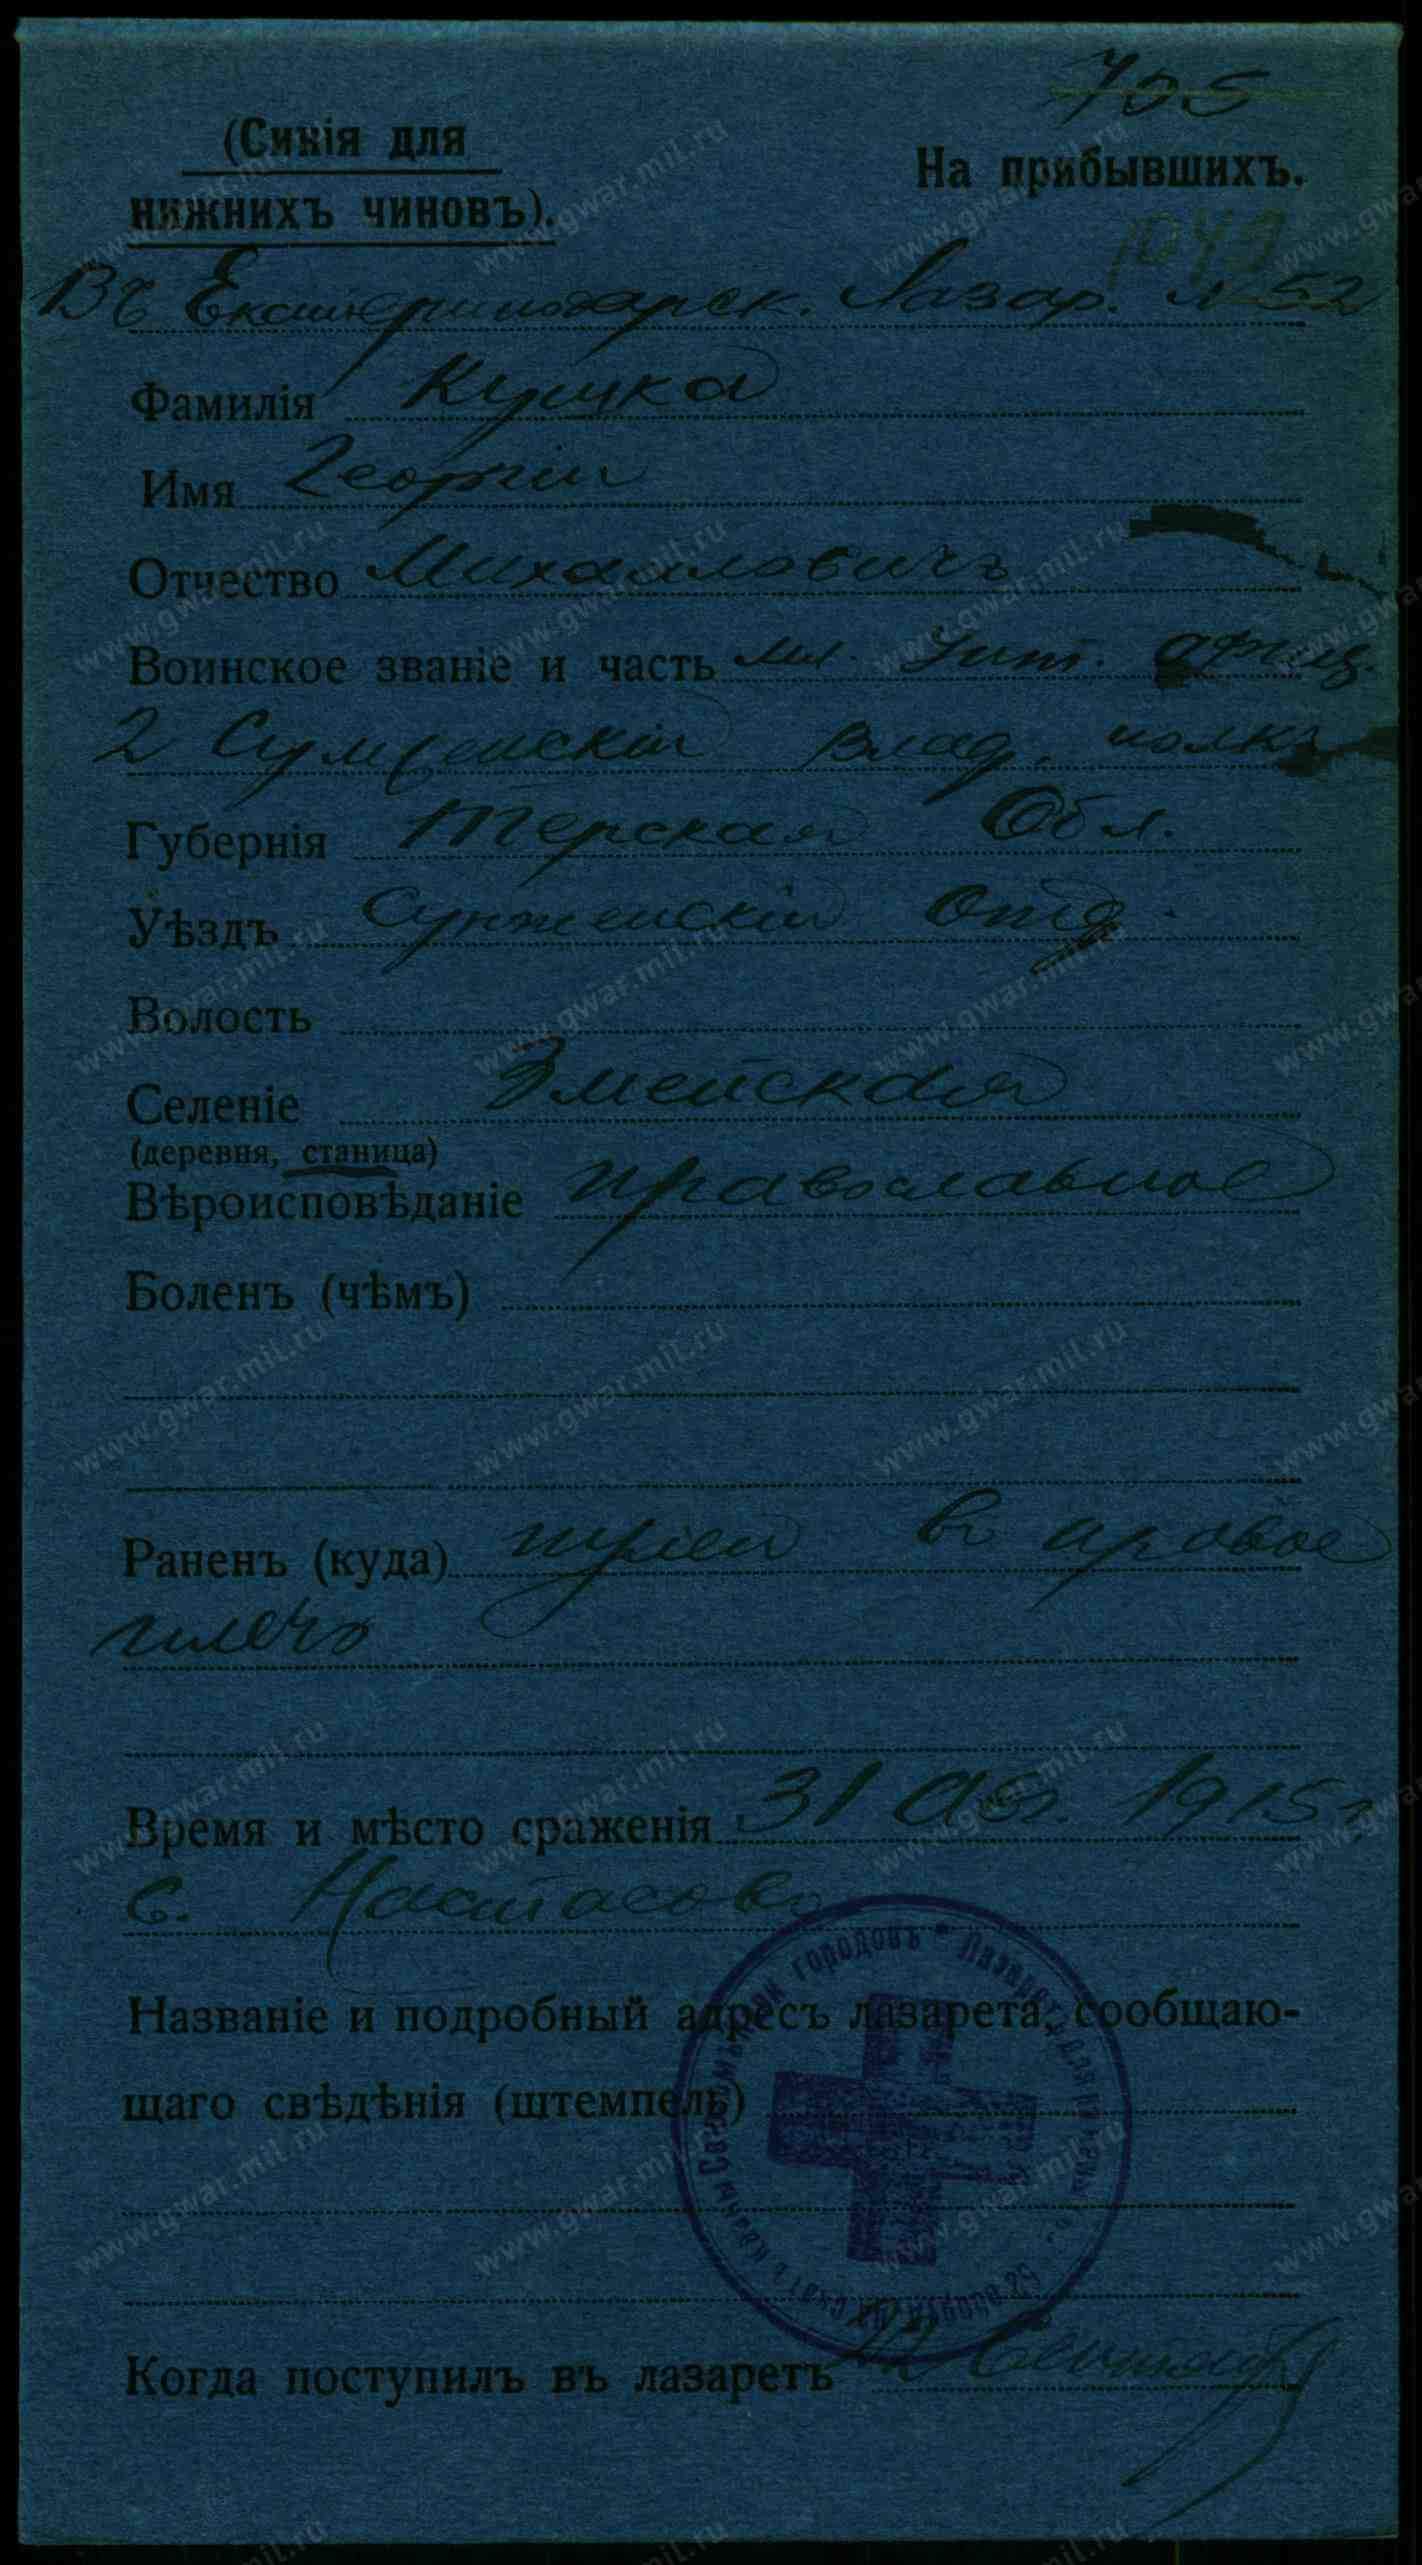 705
(Синія для
нижнихъ чиновъ).
На прибывшихъ.
1049
Въ Екатеринодарск. Лазар. № 52
Фамилія Куцка
Имя Георгій
Отчество Михайловичъ
Воинское званіе и часть мл. Унт. офиц.
2 Сунженскій Влад. полкъ
Губернія Терская Обл.
Уѣздъ Сунженскій Отд.
Волость
Селеніе Змейская
(деревня, станица)
Вѣроисповѣданіе православное
Боленъ (чѣмъ)
Раненъ (куда) пулей въ правое
плечо
Время и мѣсто сраженія 31 Авг. 1915 г
с. Настасовъ
Названіе и подробный адресъ лазарета, сообщаю-
щаго свѣдѣнія (штемпель)
городовъ * Лазаретъ для
Когда поступилъ въ лазаретъ
www.gwar.mil.ru